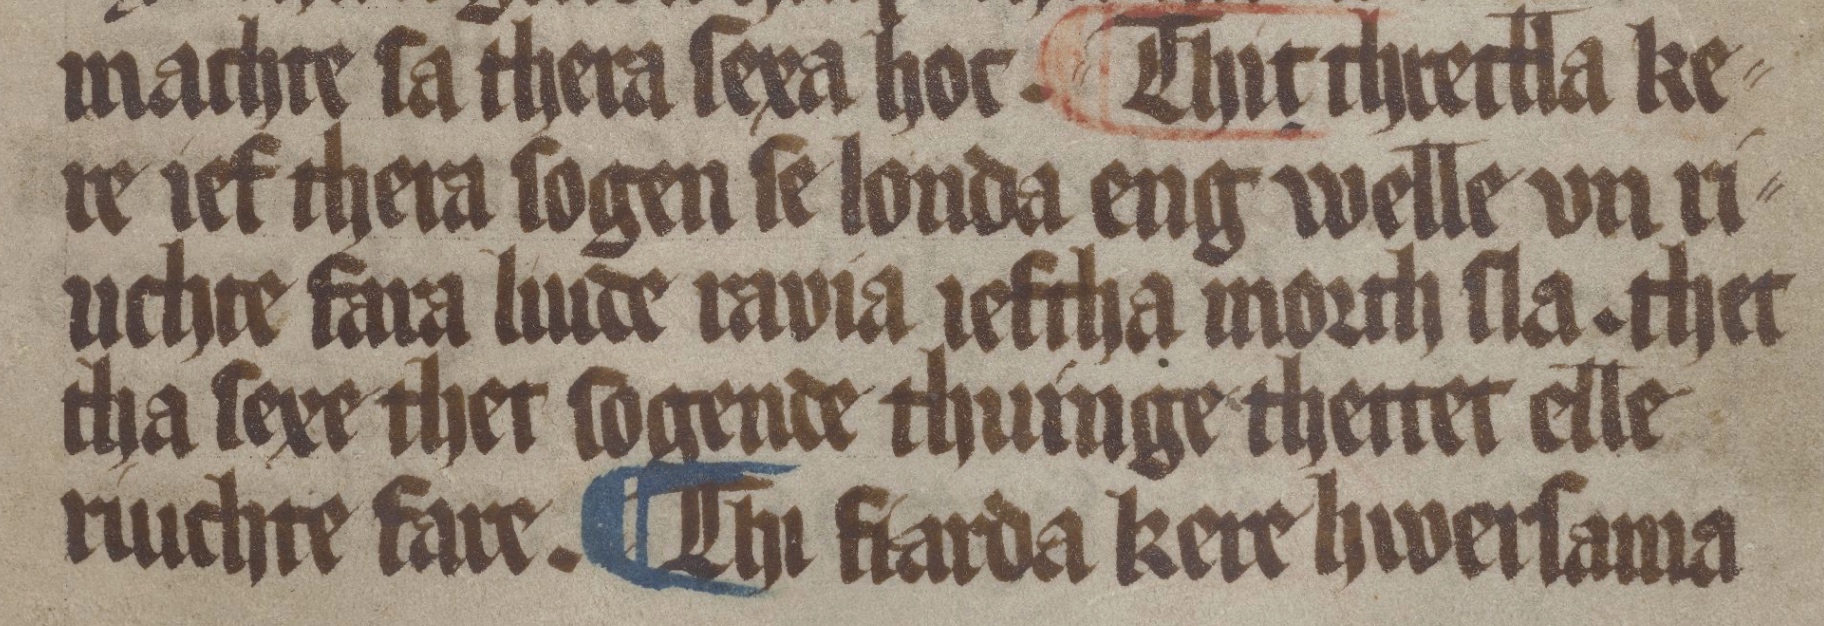 machte sa thera sexa hoc. Thit threttla ke〃
re ief thera sogen se londa eng welle vn ri〃
uchte fara liude ravia ieftha morth sla. thet
tha sexe thet sogende thuinge thettet elle
riuchte fare. Thi fiarda kere hwersama